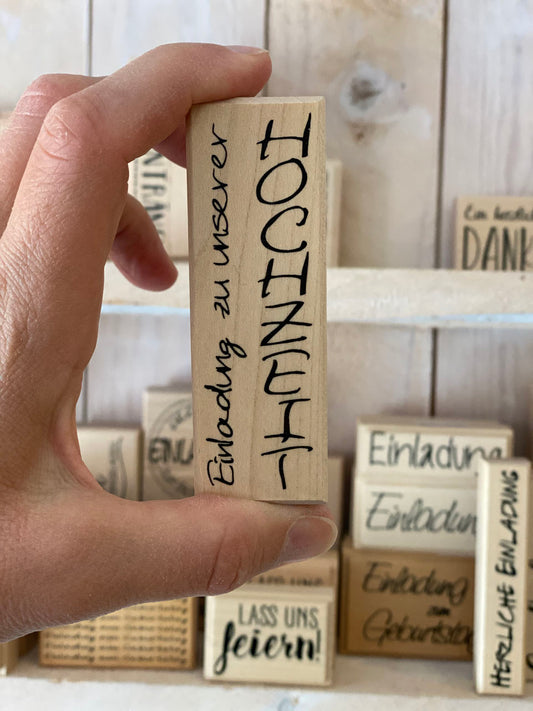 Einladung zu unserer
HOCHZEIT
Ein herzlich
DANK
Einladung
Einladun
Einladung
zum
Geburtstag
HERZLICHE EINLADUNG
LASS UNS
feiern!